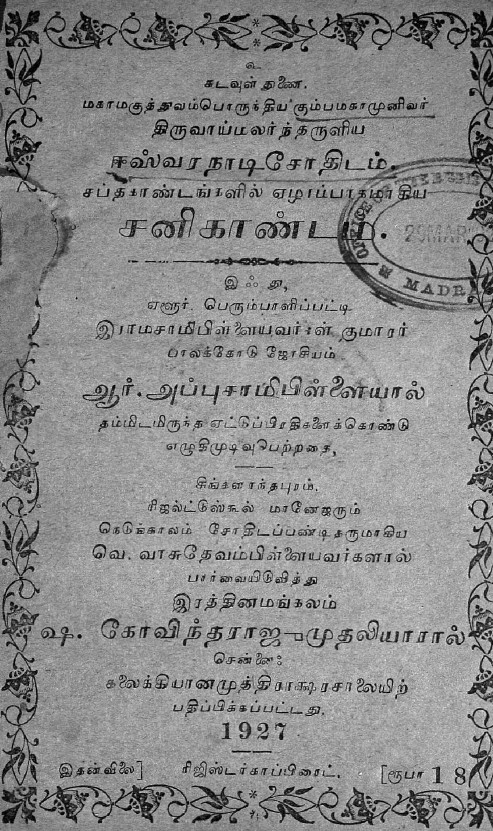 உ
கடவுள் துணை.
மகாமகுத்துவம்பொருந்திய கும்பமகாமுனிவர்
திருவாய்மலர்ந்தருளிய
ஈஸ்வரநாடிசோதிடம்.
சப்தகாண்டங்களில் ஏழாம்பாகமாகிய
சனிகாண்டம்.
OFFICE
29 MAR
MADR
இஃது,
ஏளூர். பெரும்பாளிப்பட்டி
இராமசாமிபிள்ளையவர்கள் குமாரர்
பாலக்கோடு ஜோசியம்
ஆர். அப்புசாமிபிள்ளையால்
தம்மிடமிருந்த ஏட்டுப்பிரதிகளைக்கொண்டு
எழுதிமுடிவுபெற்றதை,
சிங்களாந்தபுரம்.
ரிஜல்ட்டுஸ்கூல் மானேஜரும்
நெடுங்காலம் சோதிடப்பண்டிதருமாகிய
வெ. வாசுதேவம்பிள்ளையவர்களால்
பார்வையிடுவித்து
இரத்தினமங்கலம்
ஷ. கோவிந்தராஜமுதலியாரால்
சென்னை:
கலைக்கியானமுத்திராக்ஷரசாலையிற்
பதிப்பிக்கப்பட்டது.
1927
இதன்விலை] ரிஜிஸ்டர்காப்பிரைட். [ரூபா 1 8